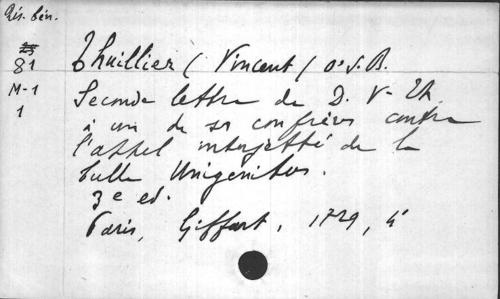 Rés. bén.
25
81
M-1
1
Thuillier (Vincent) O.S.B.
Seconde lettre de D. V. Th
à un de ses confrères contre
l'appel interjetté de la
bulle Unigenitus.
3e ed.
Paris, Giffart, 1729, 4°